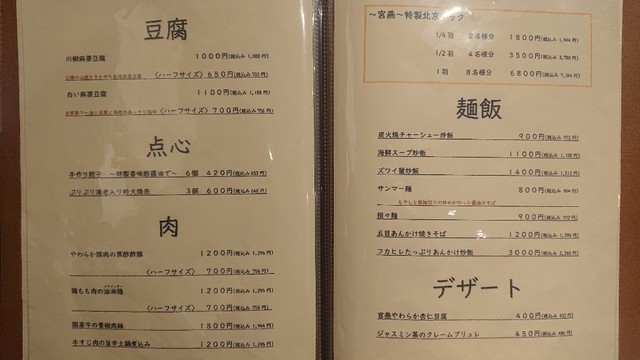 豆腐
川椒麻婆豆腐 1000円(税込み1,080円)
〈ハーフサイズ〉 650円(税込み702円)
白い麻婆豆腐 1100円(税込み1,188円)
〈ハーフサイズ〉 700円(税込み756円)
点心
手作り餃子 ～特製香味酢醤油で～ 6個 420円(税込み453円)
ぷりぷり海老入り特大焼売 3個 600円(税込み648円)
肉
やわらか豚肉の黒酢酢豚 1200円(税込み1,296円)
〈ハーフサイズ〉 700円(税込み756円)
鶏もも肉の油淋鶏 1200円(税込み1,296円)
〈ハーフサイズ〉 700円(税込み756円)
国産牛の青椒肉絲 1800円(税込み1,944円)
牛すじ肉の旨辛土鍋煮込み 1200円(税込み1,296円)
～宮燕～特製北京ダック
1/4羽 2名様分 1800円(税込み1,944円)
1/2羽 4名様分 3500円(税込み3,780円)
1羽 8名様分 6800円(税込み7,344円)
麺飯
炭火焼チャーシュー炒飯 900円(税込み972円)
海鮮スープ炒飯 1100円(税込み1,188円)
ズワイ蟹炒飯 1400円(税込み1,512円)
サンマー麺 800円(税込み864円)
担々麺 900円(税込み972円)
五目あんかけ焼きそば 1200円(税込み1,296円)
フカヒレたっぷりあんかけ炒飯 3000円(税込み3,240円)
デザート
宮燕やわらか杏仁豆腐 400円(税込み432円)
ジャスミン茶のクレームブリュレ 450円(税込み486円)